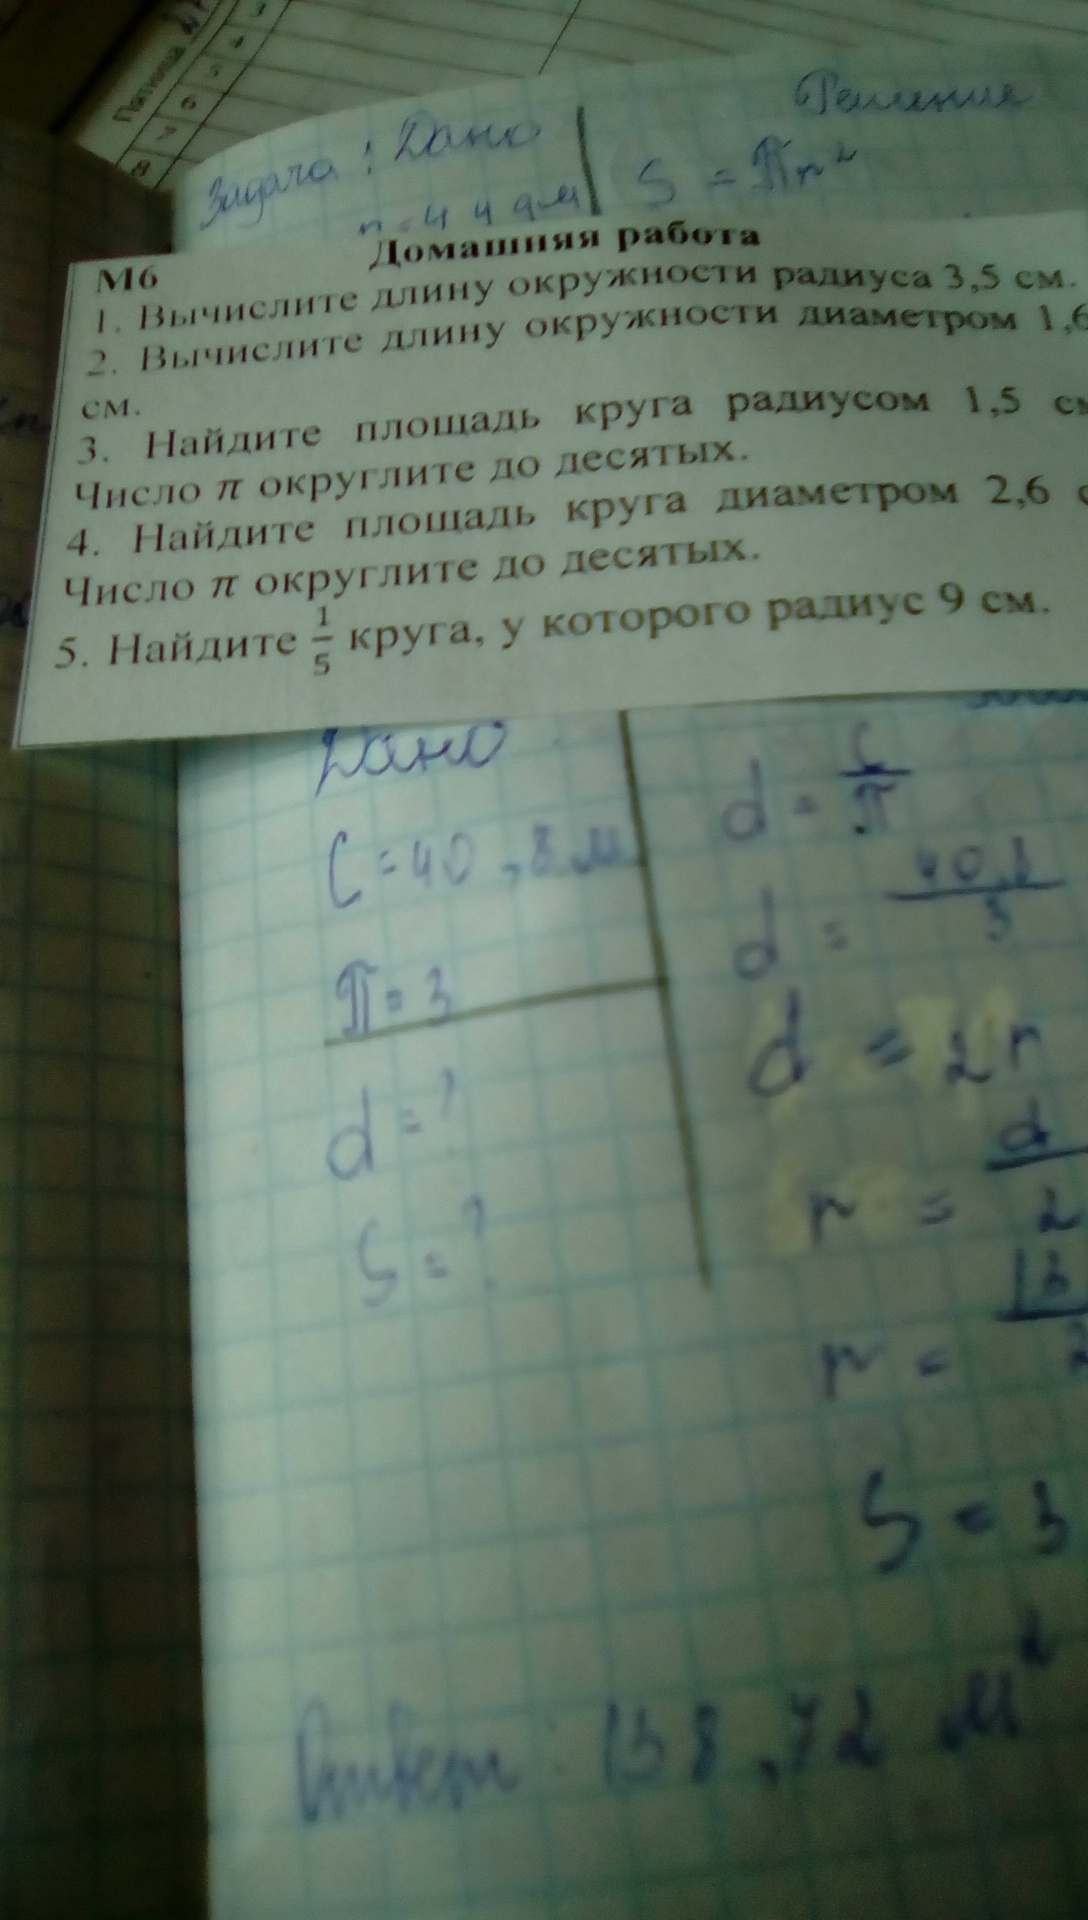 Пятница
3
4
5
6
7
8
Задача : Дано
Решения
S = πr²
М6 Домашняя работа
1. Вычислите длину окружности радиуса 3,5 см.
2. Вычислите длину окружности диаметром 1,6
см.
3. Найдите площадь круга радиусом 1,5 см
Число π округлите до десятых.
4. Найдите площадь круга диаметром 2,6 с
Число π округлите до десятых.
5. Найдите 1/5 круга, у которого радиус 9 см.
Дано
C = 40,8 м
π = 3
d = ?
S = ?
d = C/π
d = 40,8/3
d = 2r
r = d/2
r = 13/2
S = 3
Ответ : 138,72 м²